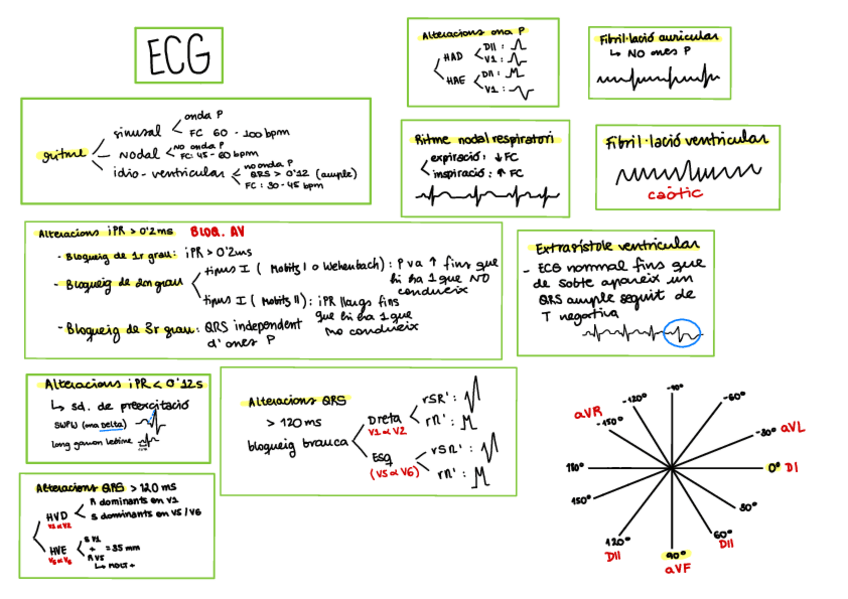 ECG
ritme
sinusal
onda P
FC 60 - 100 bpm
Nodal
no onda P
FC: 45 - 60 bpm
idio - ventricular
no onda P
QRS > 0'12 (ample)
FC : 30 - 45 bpm
Alteracions ona P
HAD
DII :
V1 :
HAE
DII :
V1 :
Fibril·lació auricular
↳ NO ones P
Ritme nodal respiratori
expiració: ↓ FC
inspiració: ↑ FC
Fibril·lació ventricular
caòtic
Alteracions iPR > 0'2ms BLOQ. AV
- Bloqueig de 1r grau: iPR > 0'2ms
- Bloqueig de 2on grau
tipus I ( Mobitz I o Wehenbach) : P va ↑ fins que
hi ha 1 que NO
condueix
tipus I ( Mobitz II) : iPR llargs fins
que hi ha 1 que
no condueix
- Bloqueig de 3r grau: QRS independent
d'ones P
Extrasístole ventricular
- ECG normal fins que
de sobte apareix un
QRS ample seguit de
T negativa
Alteracions iPR < 0'12s
↳ sd. de preexcitació
SWPW (ona Delta)
Alteracions QRS
> 120 ms
bloqueig branca
Dreta
V1 o V2
rSR' :
rR' :
Esq
(V5 o V6)
rSR' :
rR' :
Alteracions QRS > 120 ms
HVD
V1 o V2
R dominants en V1
S dominants en V5 / V6
HVE
V5 o V6
S V1
+ = 35 mm
R V5
-90°
-120°
-60°
aVR
-150°
-30° aVL
180°
0° DI
150°
30°
120°
DIII
60°
DII
90°
aVF